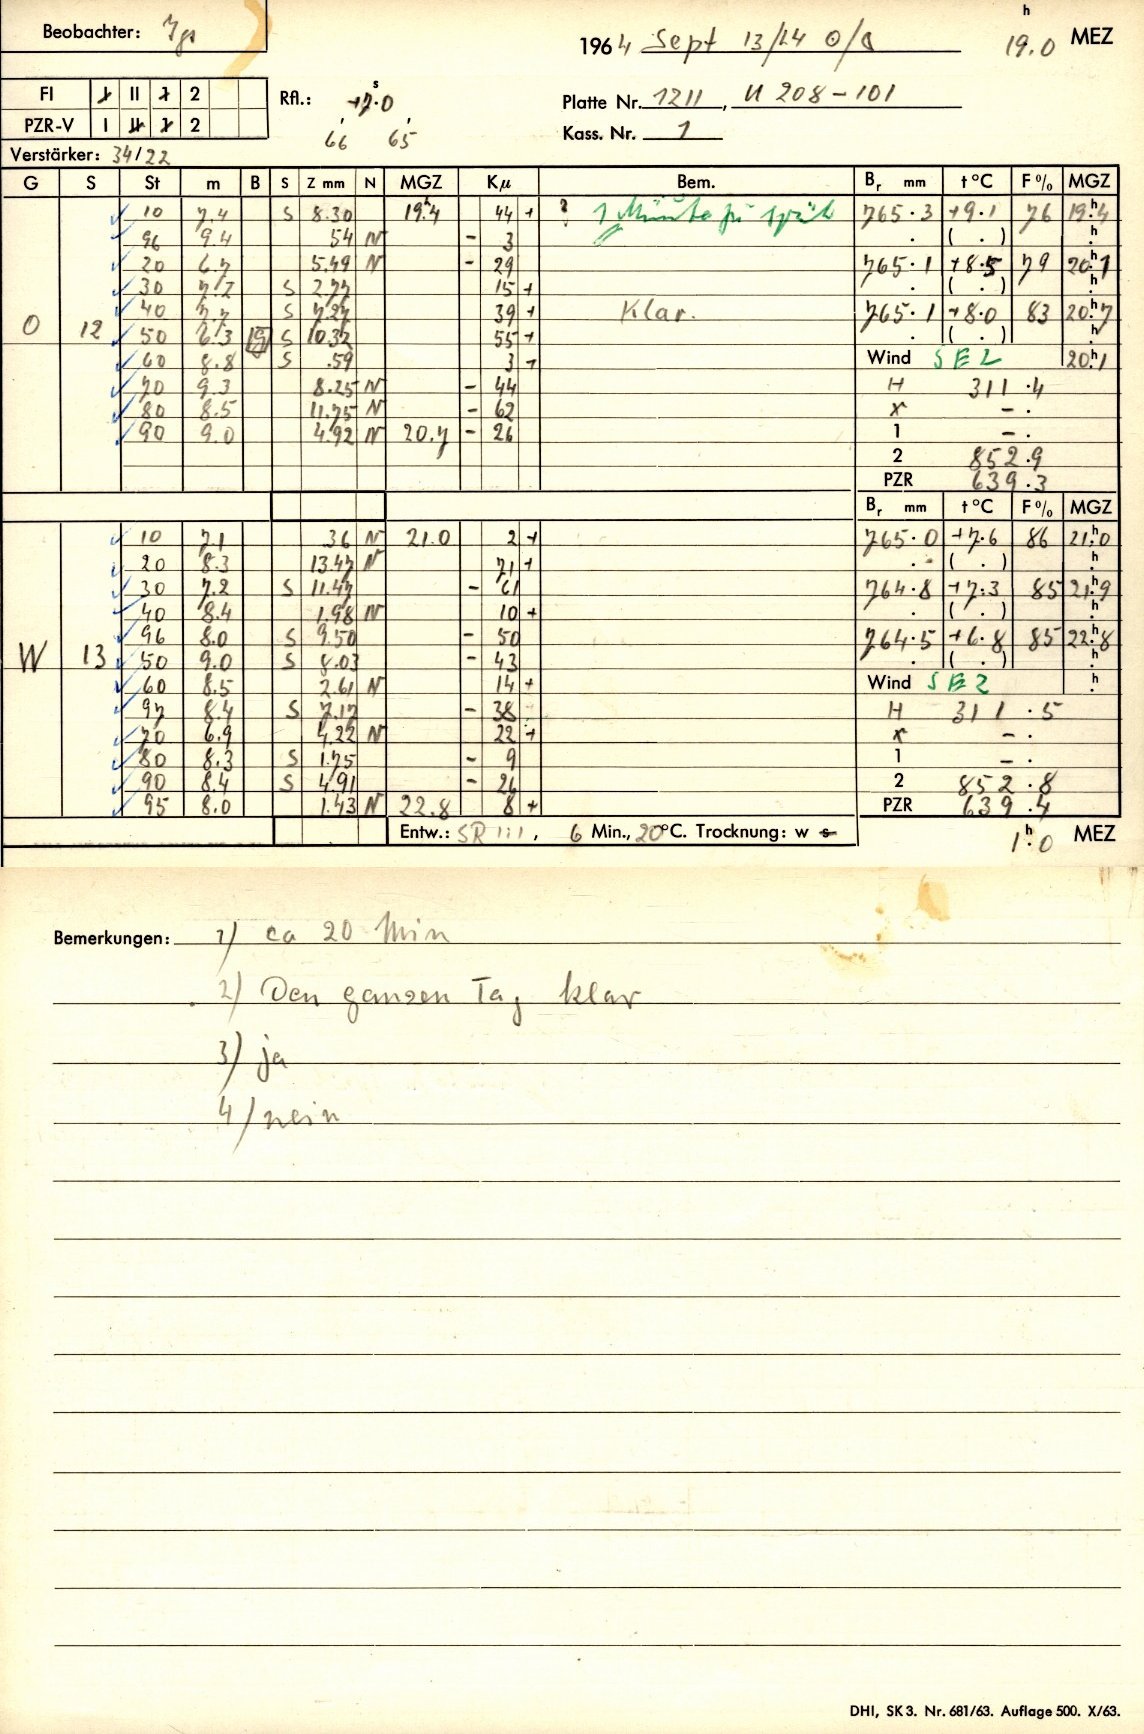 Beobachter: Jgs
1964 Sept 13/14 0/0 19.0 h MEZ
FI I II 1 2
PZR-V I II 1 2
Rfl.: +7.0 s
66 65
Platte Nr. 1211, U 208-101
Kass. Nr. 1
Verstärker: 34/22
G S St m B S Z mm N MGZ Kμ Bem. Br mm t °C F % MGZ
10 7.4 S 8.30 19.4 h 44 + ? 1 Minute zu spät 765.3 +9.1 76 19.4 h
96 9.4 54 N - 3 . ( . ) h
20 6.7 5.49 N - 29 765.1 +8.5 79 20.1 h
30 7.2 S 2.77 15 + . ( . ) h
40 7.7 S 7.27 39 + Klar. 765.1 +8.0 83 20.7 h
O 12 50 6.3 19 S 10.32 55 + . ( . ) h
60 8.8 S .59 3 + Wind SE 2 20.1 h
70 9.3 8.25 N - 44 H 311.4
80 8.5 11.75 N - 62 x - .
90 9.0 4.92 N 20.7 - 26 1 - .
2 852.9
PZR 639.3
Br mm t °C F % MGZ
10 7.1 36 N 21.0 2 + 765.0 +7.6 86 21.0 h
20 8.3 13.47 N 71 + . ( . ) h
30 7.2 S 11.47 - 61 764.8 +7.3 85 21.9 h
40 8.4 1.98 N 10 + . ( . ) h
96 8.0 S 9.50 - 50 764.5 +6.8 85 22.8 h
W 13 50 9.0 S 8.03 - 43 . ( . ) h
60 8.5 2.61 N 14 + Wind SE 2 h
97 8.4 S 7.17 - 38 H 311.5
70 6.9 4.22 N 22 + x - .
80 8.3 S 1.75 - 9 1 - .
90 8.4 S 4.91 - 26 2 852.8
95 8.0 1.43 N 22.8 8 + PZR 639.4
Entw.: SR 1:1, 6 Min., 20 °C. Trocknung: w s 1.0 h MEZ
Bemerkungen: 1) ca 20 Min
2) Den ganzen Tag klar
3) ja
4) nein
DHI, SK 3. Nr. 681/63. Auflage 500. X/63.